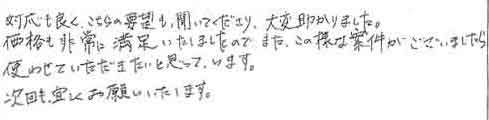 対応も良く、こちらの要望も、聞いてくださり、大変助かりました。
価格も非常に満足いたしましたので また、この様な案件がございましたら
使わせていただきたいと思っています。
次回も、宜しくお願いいたします。